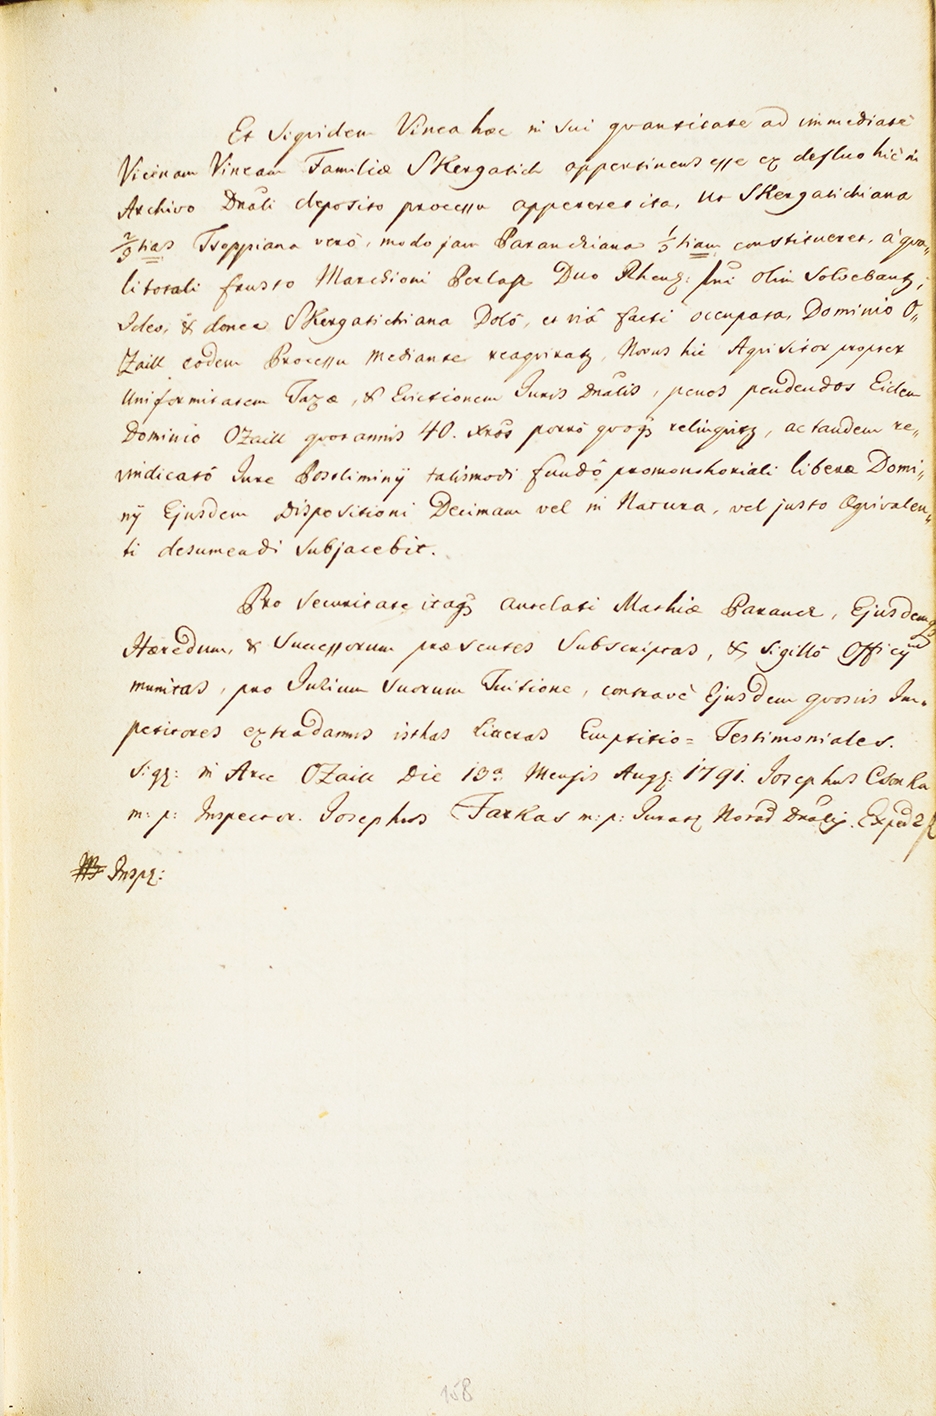 Et siquidem Vinea haec in sui quantitate ad immediatè
Vicinam Vineam Familiae Skergatich appertinens esse ex defluo hic in
Archivo Dnāli deposito processu appereret ita, ut Skergatichiana
2/3 tias Tsoppiana verò, modo jam Paranchiana 1/3 tiam constitueret, à qua„
litotali frusto Marchioni Perlas Duo Rhen: olim Solvebantꝫ,
Ideo, & donec Skergatichiana Dolô, et viâ facti occupata, Dominio O„
Zaill eodem Processu mediante reaquiratꝫ, Novus hic Aquisitor propter
Uniformitatem Taxae, & Evictionem Juris Dnālis, penes pendendos Eidem
Dominio OZaill quotannis 40. xros porrò quoqꝫ relinquitꝫ, ac tandem re„
vindicatô Jure Postliminij talismodi fundô promonthoriali liberae Domi„
nij Ejusdem Dispositioni Decimam vel in Natura, vel justo Aequivalen„
ti desumendi subjacebit.
Pro securitate itaqꝫ antelati Mathiae Paranch, Ejusdemqꝫ
Haeredum, & Successorum praesentes Subscriptas, & sigillô Officij
munitas, pro Jurium suorum Tuitione, contravè Ejusdem quosvis Im„
petitores extradamus isthas Litteras Emptitio= Testimoniales.
Sigꝫ: in Arce OZaill Die 13a Mensis Augꝫ 1791. Josephus Csonka
m: p: Inspector. Josephus Farkas m: p: Juratꝫ Notaꝫ Dnālis.
Inspꝫ:
158